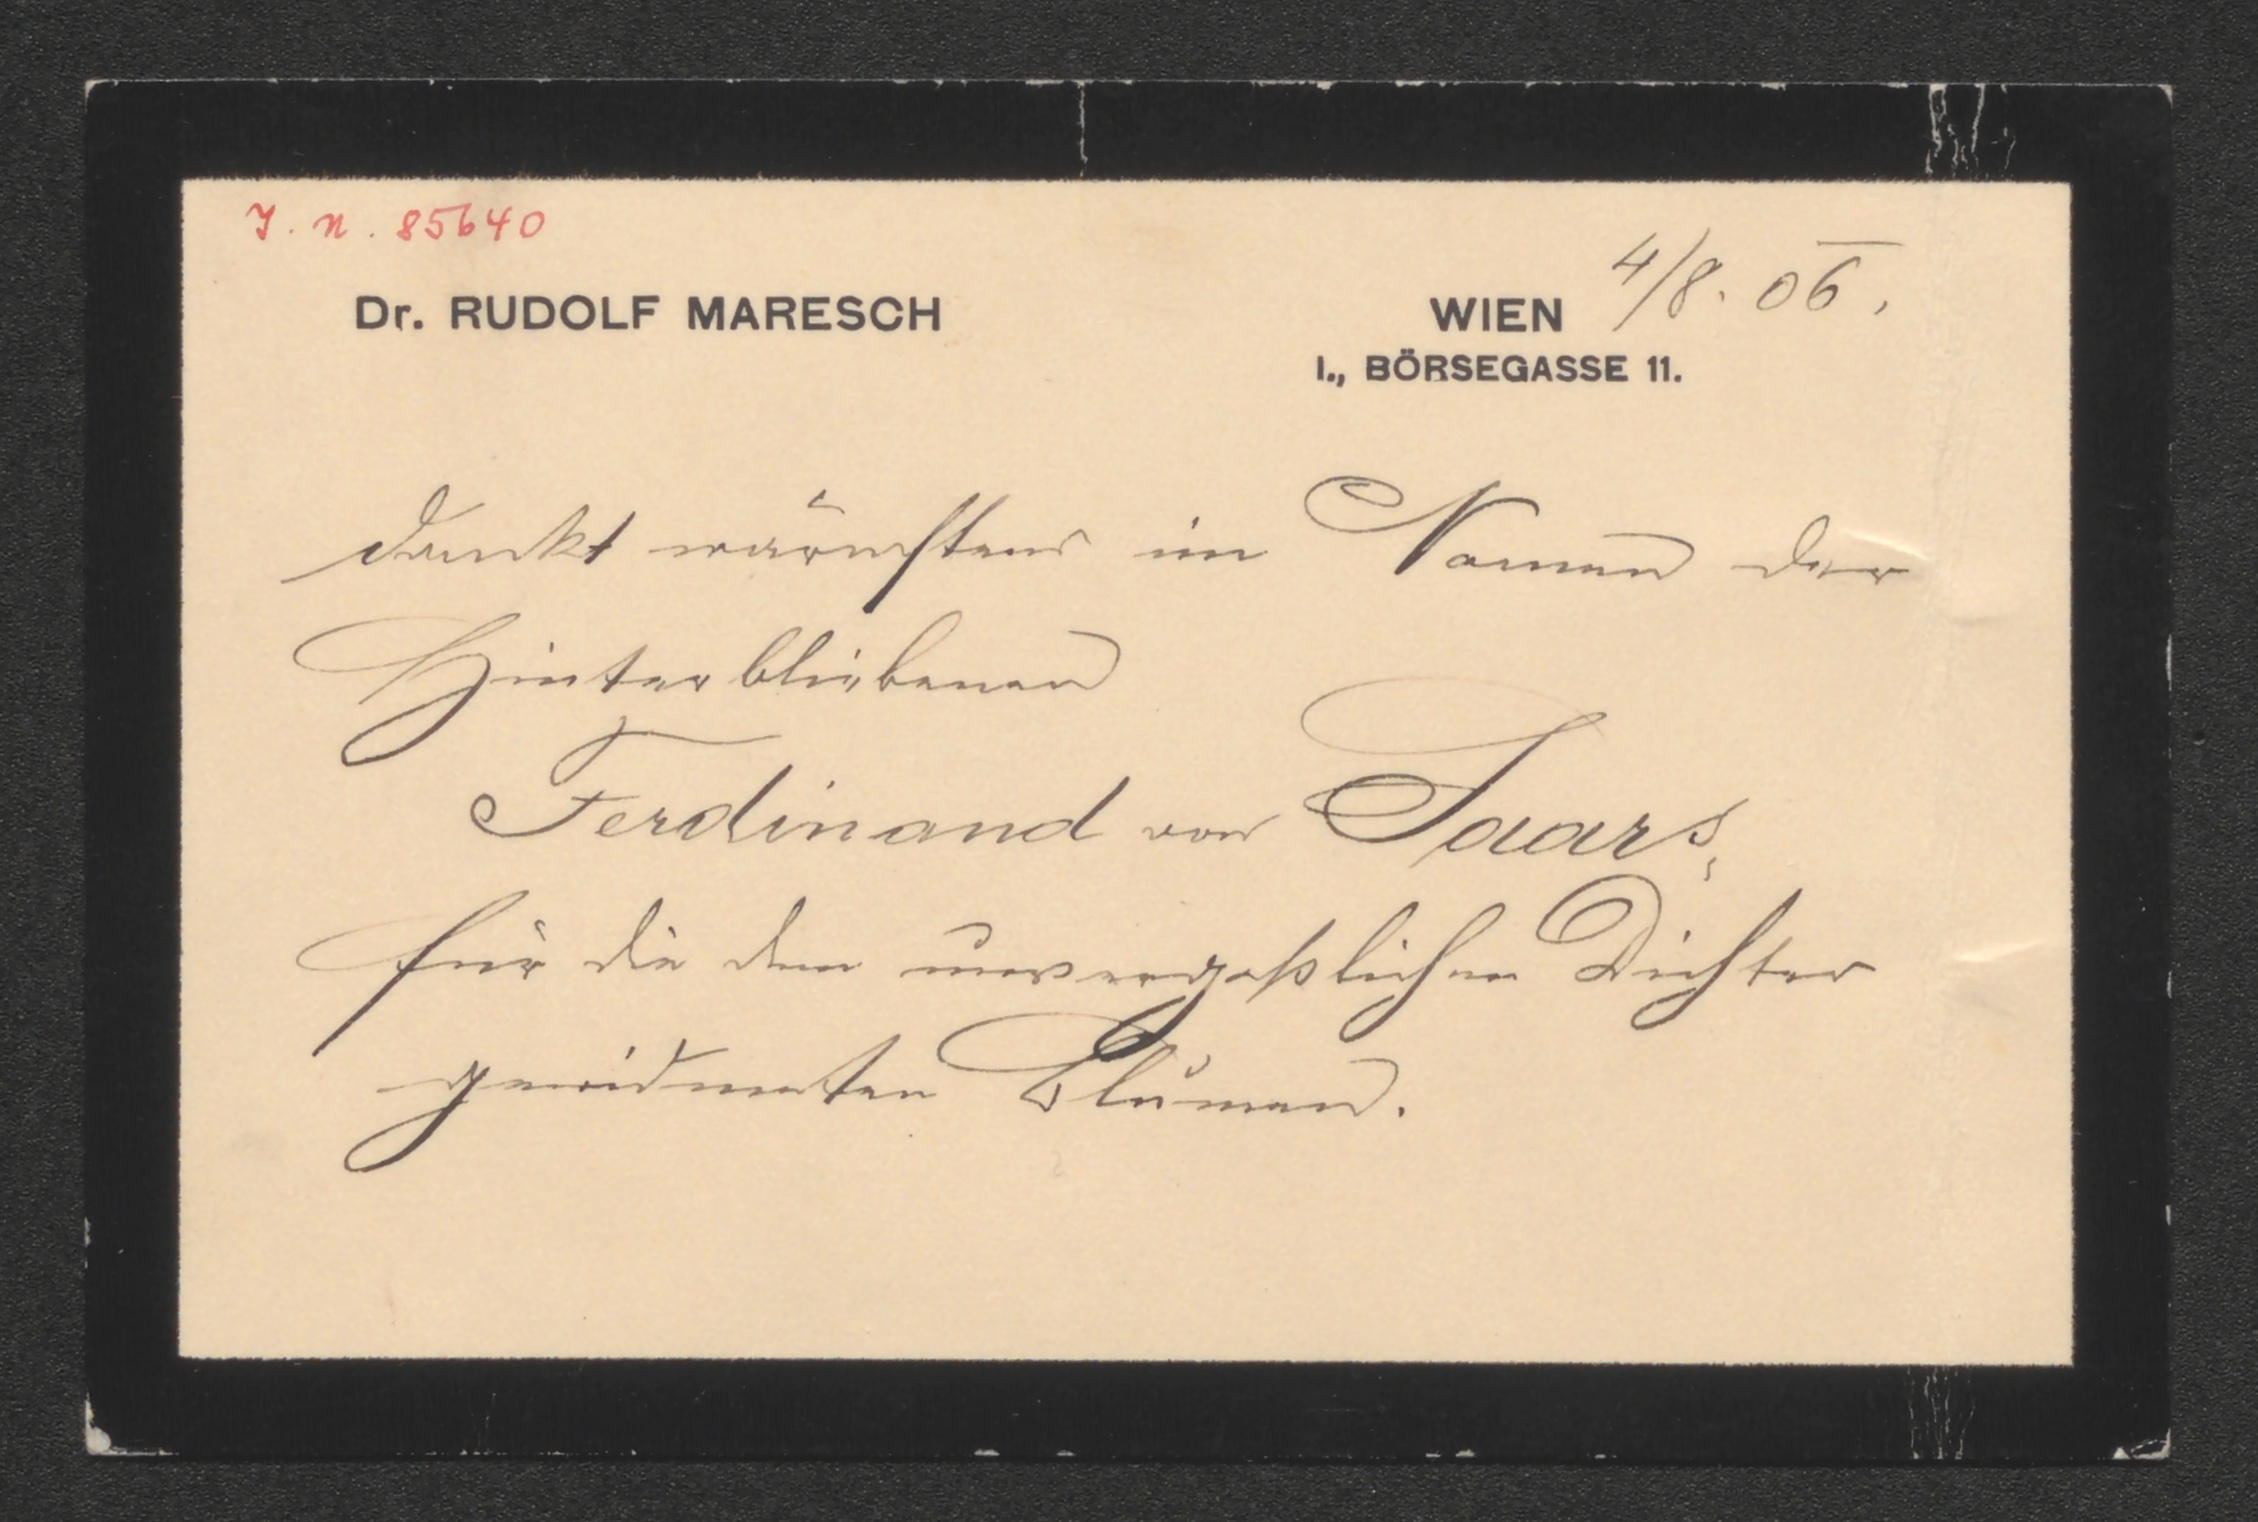 J. N. 85640
Dr. RUDOLF MARESCH
WIEN 4/8. 06.
I., BÖRSEGASSE 11.
dankt wärmstens im Namen der
Hinterbliebenen
Ferdinand von Saars,
für die dem unvergeßlichen Dichter
gewidmeten Blumen.